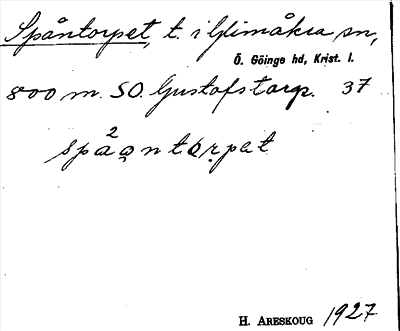 Spåntorpet, t. i Glimåkra sn,
Ö. Göinge hd, Krist. l.
800 m. SO. Gustafstorp. 37
2
spåa̧ntorpet
H. ARESKOUG 1927